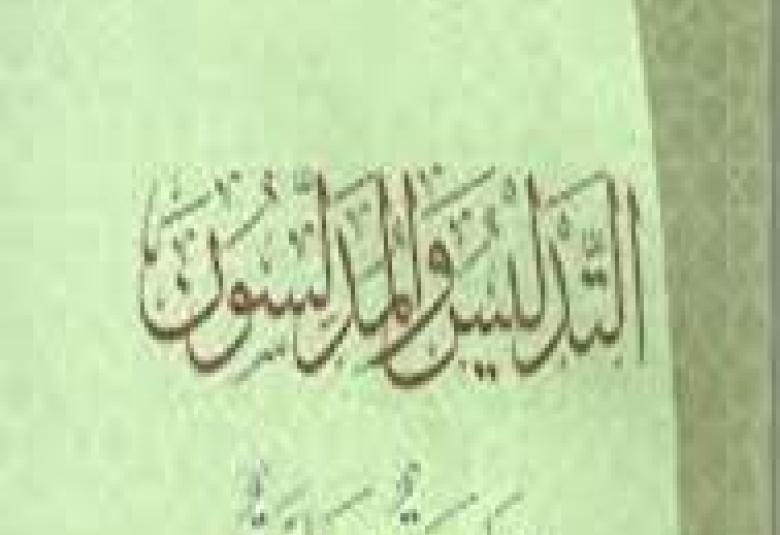 التَّدْلِيسُ وَالْمُدَلِّسُونَ